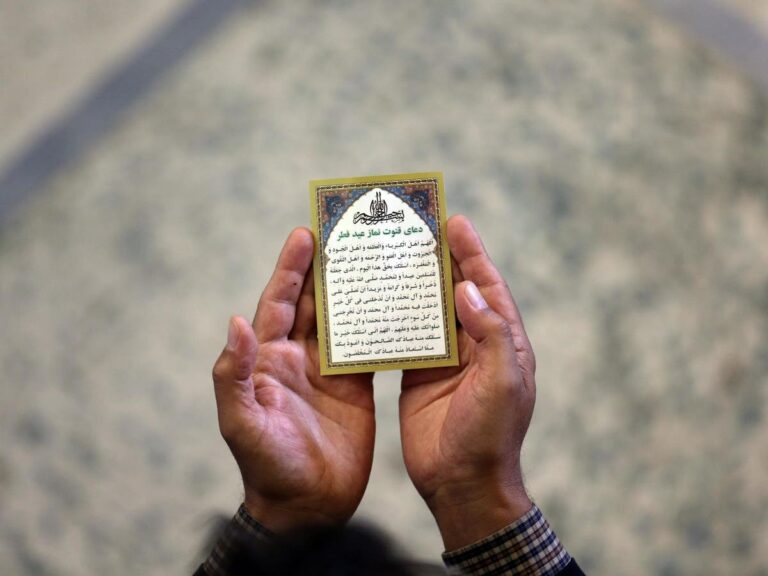 دعای قنوت نماز عید فطر
اَللّهُمَّ اَهْلَ الْكِبْرِياءِ وَالْعَظَمَةِ وَ اَهْلَ الْجُودِ وَ
الْجَبَرُوتِ وَ اَهْلَ الْعَفْوِ وَ الرَّحْمَةِ وَ اَهْلَ التَّقْوى
وَ الْمَغْفِرَةِ، اَسْئَلُكَ بِحَقِّ هذَا الْيَومِ، الَّذى جَعَلْتَهُ
لِلْمُسْلِمينَ عيداً وَ لِمُحَمَّدٍ صَلَّى اللهُ عَلَيْهِ وَ آلِه،
ذُخْراً وَ شَرَفاً وَ كَرامَةً وَ مَزيداً اَنْ تُصَلِّىَ عَلى
مُحَمَّدٍ وَ آلِ مُحَمَّدٍ وَ اَنْ تُدْخِلَنى فى كُلِّ خَيْرٍ
اَدْخَلْتَ فيهِ مُحَمَّداً وَ آلَ مُحَمَّدٍ وَ اَنْ تُخْرِجَنى
مِنْ كُلِّ سُوءٍ اَخْرَجْتَ مِنْهُ مُحَمَّداً وَ آلَ مُحَمَّدٍ،
صَلَواتُكَ عَلَيْهِ وَ عَلَيْهِمْ، اَللّهُمَّ اِنّى اَسْئَلُكَ خَيْرَ ما
سَئَلَكَ مِنْهُ عِبادُكَ الصّالِحُونَ وَ اَعُوذُ بِكَ
مِمَّا اسْتَعاذَ مِنْهُ عِبادُكَ الْمُخْلَصُونَ.